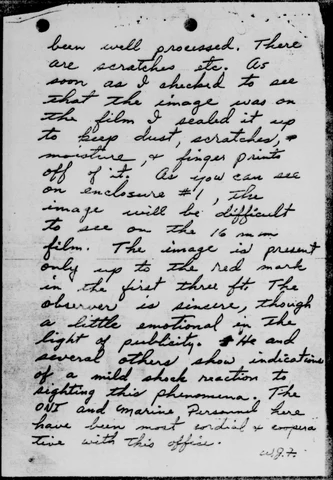 been well processed. There
are scratches etc. As
soon as I checked to see
that the image was on
the film I sealed it up
to keep dust, scratches, &
moisture, & finger prints
off of it. As you can see
on enclosure #1, the
image will be difficult
to see on the 16 mm
film. The image is present
only up to the red mark
in the first three ft. The
observer is sincere, though
a little emotional in the
light of publicity. He and
several others show indications
of a mild shock reaction to
sighting this phenomena. The
ONI and Marine Personnel here
have been most cordial & coopera
tive with this office.